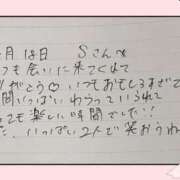 月18日 Sさんへ
つも会いに来てくれて
がとう♡いつもおもしろすぎて
間いっぱいわらっていられて
ても楽しい時間でした!!
た、いっぱい2人で笑おうね